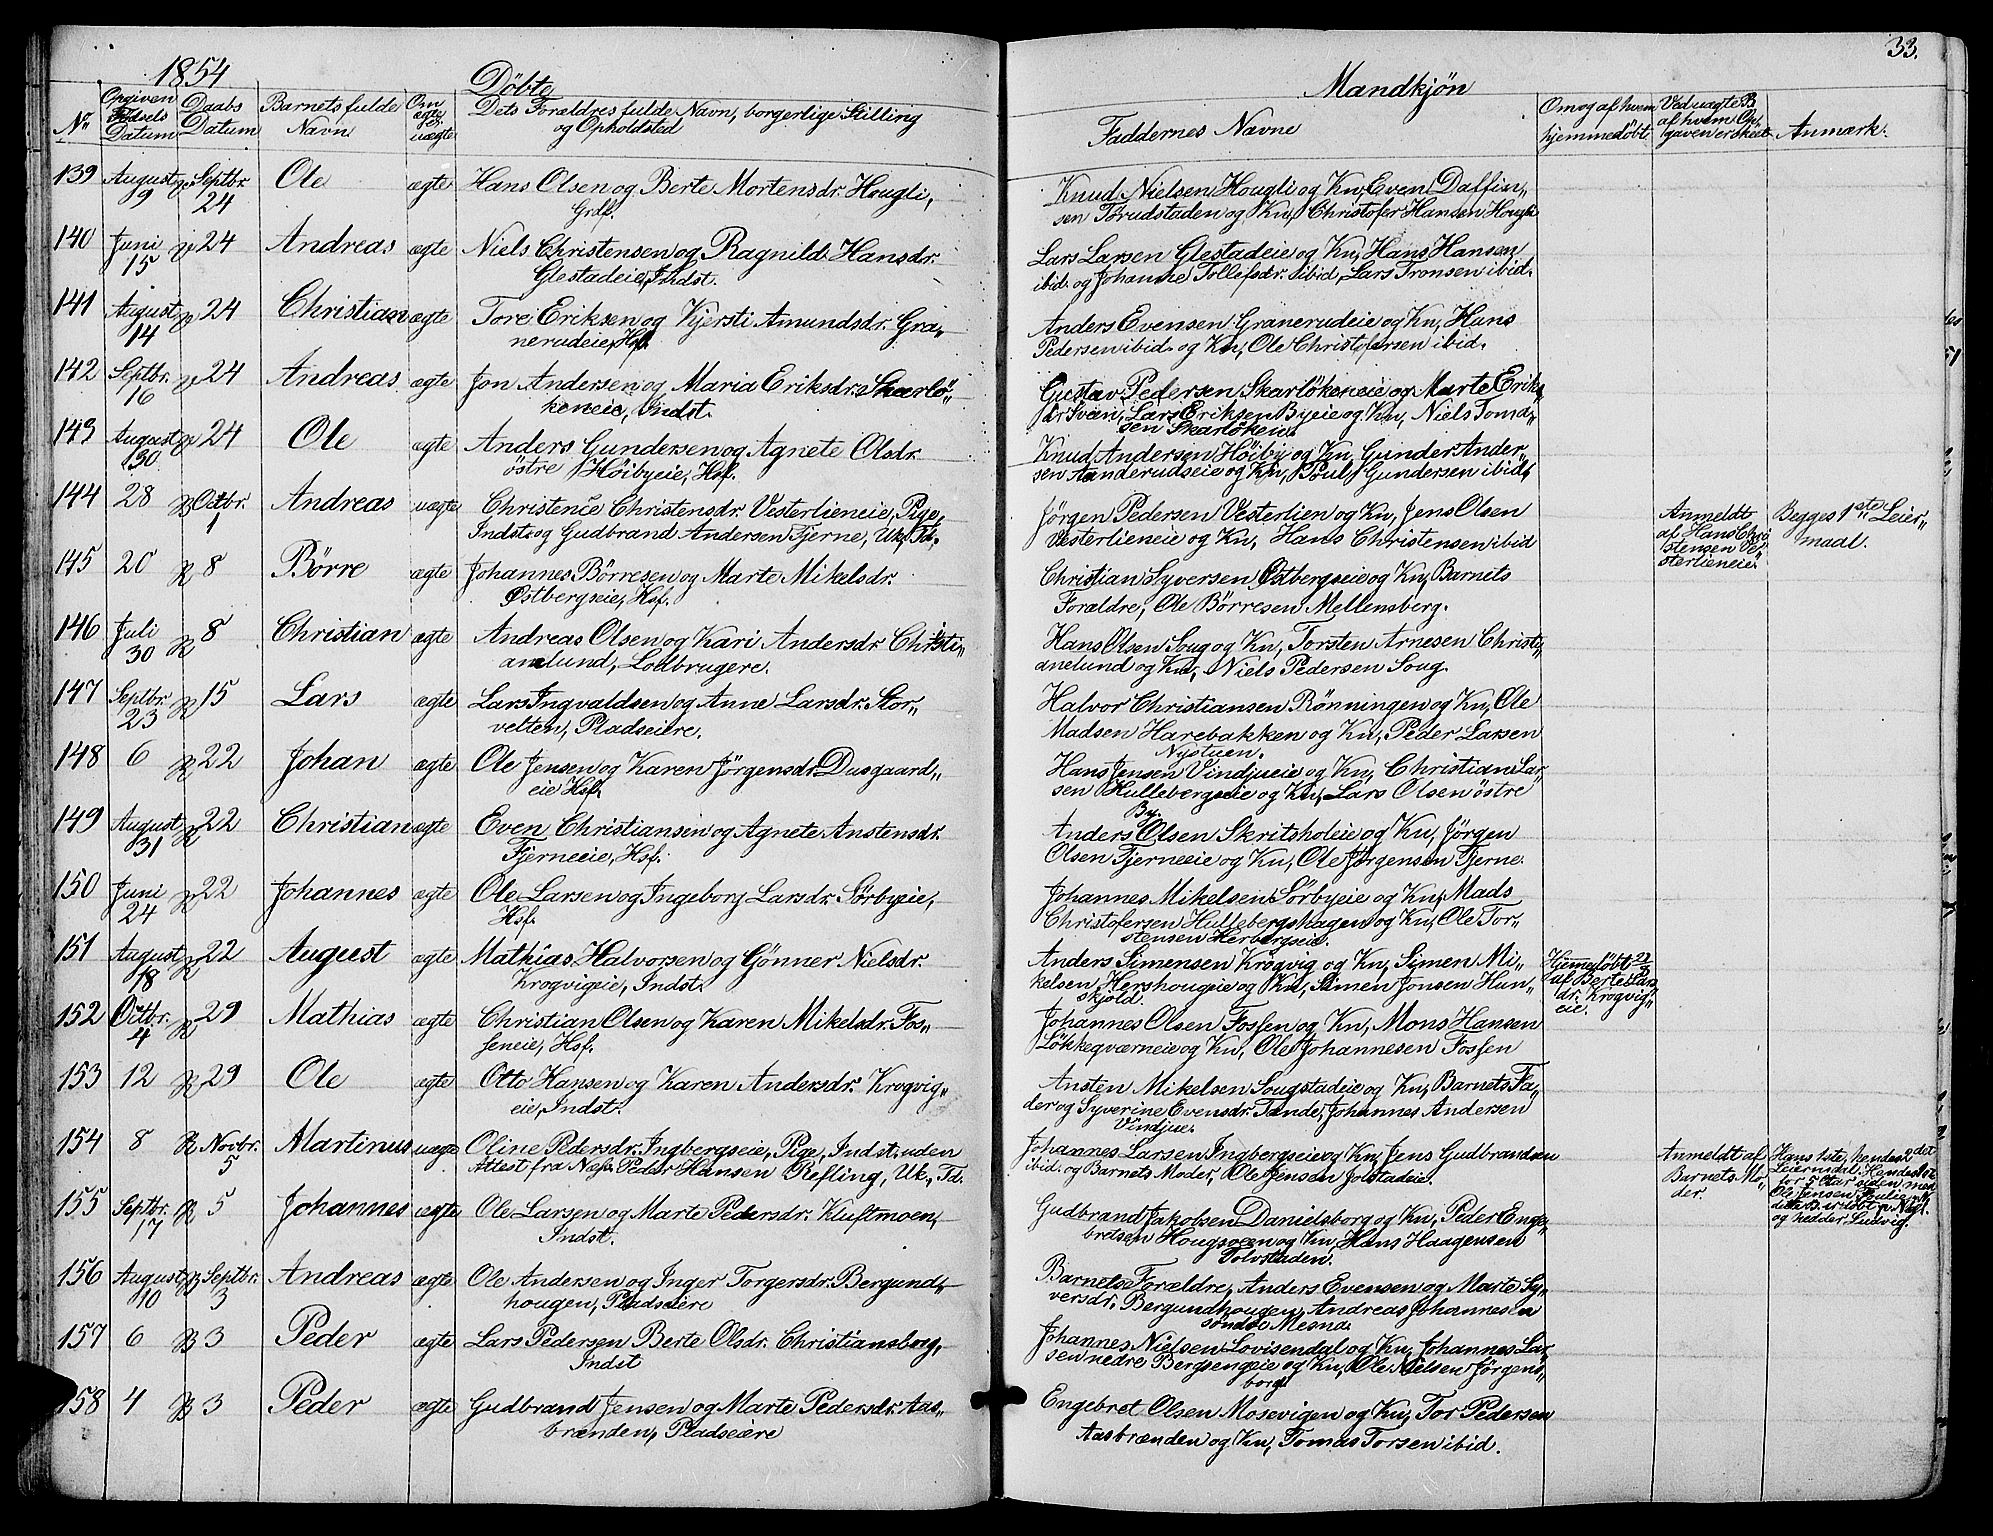 1854
Döbte
Mandkjön
33.
No
Opgiven Födsels Datum
Daabs Datum
Barnets fulde Navn
Om ægte el. uægte
Dets Forældres fulde Navn, borgerlige Stilling
og Opholdsted
Faddernes Navne
Om og af hvem
hjemmedöbt
Ved uægte B.
af hvem Op-
gaven er skeet
Anmærk.
139 August 9 Septbr. 24 Ole ægte Hans Olsen og Berte Mortensdr. Hougli,
Grdf.
Knud Nielsen Hougli og Kn, Even Daffin„
sen Trudstaden og Kn, Christofer Hansen Hougli
140 Juni 15 24 Andreas ægte Niels Christensen og Ragnild Hansdr.
Glestadeie, Indst.
Lars Larsen Glestadeie og Kn, Hans Hansen
ibid. og Johanne Tollefsdr. ibid, Lars Tronsen ibid.
141 August 14 24 Christian ægte Tore Eriksen og Kjersti Amundsdr. Gra„
nerudeie, Hsf.
Anders Evensen Granerudeie og Kn, Hans
Pedersen ibid. og Kn, Ole Christofersen ibid.
142 Septbr. 16 24 Andreas ægte Jon Andersen og Maria Eriksdr. Skarlö„
keneie, Indst.
Gustav Pedersen Skarlökeneie og Marte Eriks„
dr. Svan, Lars Eriksen Byeie og Kn, Niels Toma„
sen Skarlökeneie
143 August 30 24 Ole ægte Anders Gundersen og Agnete Olsdr.
östre Höibyeie, Hsf.
Knud Andersen Höiby og Kn, Gunder Ander„
sen Aanderudseie og Kn, Poul Gundersen ibid.
144 28 Octbr. 1 Andreas uægte Christence Christensdr. Vesterlieneie, Pige,
Indst. og Gudbrand Andersen Tjerne, Uk, Td.
Jörgen Pedersen Vesterlien og Kn, Jens Olsen
Vesterlieneie og Kn, Hans Christensen ibid
Anmeldt
af Hans Chri
stensen Ve„
sterlieneie
Begges 1ste Leier„
maal.
145 20 8 Börre ægte Johannes Börresen og Marte Mikelsdr.
Östbergseie, Hsf.
Christian Syversen Östbergseie og Kn, Barnets
Forældre, Ole Börresen Mellensberg.
146 Juli 30 8 Christian ægte Andreas Olsen og Kari Andersdr. Christi„
anelund, Lodbrugere.
Hans Olsen Soug og Kn, Torsten Arnesen Christi„
anelund og Kn, Niels Pedersen Soug.
147 Septbr. 23 15 Lars ægte Lars Ingvaldsen og Anne Larsdr. Stor„
velten, Pladseiere.
Halvor Christiansen Rönningen og Kn, Ole
Madsen Harebakken og Kn, Peder Larsen
Nystuen.
148 6 22 Johan ægte Ole Jensen og Karen Jörgensdr. Dusgaard„
eie Hsf.
Hans Jensen Vindjueie og Kn, Christian Lar„
sen Hullebergseie og Kn, Lars Olsen östre
By.
149 August 31 22 Christian ægte Even Christiansen og Agnete Anstensdr.
Tjerneeie, Hsf.
Anders Olsen Skritsholeie og Kn, Jörgen
Olsen Tjerneeie og Kn, Ole Jörgensen Tjerne.
150 Juni 24 22 Johannes ægte Ole Larsen og Ingeborg Larsdr. Sörbyeie,
Hsf.
Johannes Mikelsen Sörbyeie og Kn, Mads
Christofersen Hullebergshagen og Kn, Ole Tor„
stensen Herbergseie.
151 August 18 22 August ægte Mathias Halvorsen og Gönner Nielsdr.
Krogvigeie, Indst.
Anders Simensen Krogvig og Kn, Simen Mi„
kelsen Hershougeie og Kn, Simen Jonsen Hun„
skjold.
Hjemedöbt
af Berte Lars
dr. Krogvig„
eie.
152 Octbr. 4 29 Mathias ægte Christian Olsen og Karen Mikelsdr. Fos„
seneie, Hsf.
Johannes Olsen Fossen og Kn, Mons Hansen
Lökkegværneie og Kn, Ole Johannesen Fossen
153 12 29 Ole ægte Otto Hansen og Karen Andersdr. Krogvig„
eie, Indst.
Ansten Mikelsen Sougstadeie og Kn, Barnets Fa„
der og Syverine Evensdr. Tande, Johannes Andersen
Vindjue.
154 8 Novbr. 5 Martinus uægte Oline Pedersdr. Ingbergseie, Pige, Indst. uden
Attest fra Næs. Peder Hansen Refling, Uk, Td.
Johannes Larsen Ingbergseie og Kn, Jens Gudbrandsen
ibid. og Barnets Moder, Ole Jensen Jolstadeie.
Anmeldt af
Barnets Mo„
der.
Hans 1ste, hendes 2det
Leiermaal. Hendes 1ste
for 5 Aar siden med
Ole Jensen
dette B. er döbt p. Næs.
og hedder Ludvig.
155 Septbr. 17 5 Johannes ægte Ole Larsen og Marte Pedersdr. Kluftmoen,
Indst.
Gudbrand Jakobsen Danielsborg og Kn, Peder Enge„
bretsen Hougsveen og Kn, Hans Haagensen
Tolvstaden.
156 August 10 Septbr. 3 Andreas ægte Ole Andersen og Inger Torgersdr. Bergund„
hougen, Pladseiere
Barnets Forældre, Anders Evensen og Marte Sy„
versdr. Bergundhougen, Andreas Johannesen
söndre Mesna.
157 6 3 Peder ægte Lars Pedersen Berte Olsdr. Christiansborg,
Indst
Johannes Nielsen Lovisendal og Kn, Johannes Lar„
sen nedre Bergsengeie og Kn, Ole Nielsen Jörgens„
borg
158 4 3 Peder ægte Gudbrand Jensen og Marte Pedersdr. Aas„
brænden, Pladseiere
Engebret Olsen Mosevigen og Kn, Tor Pedersen
Aasbrænden og Kn, Tomas Torsen ibid.